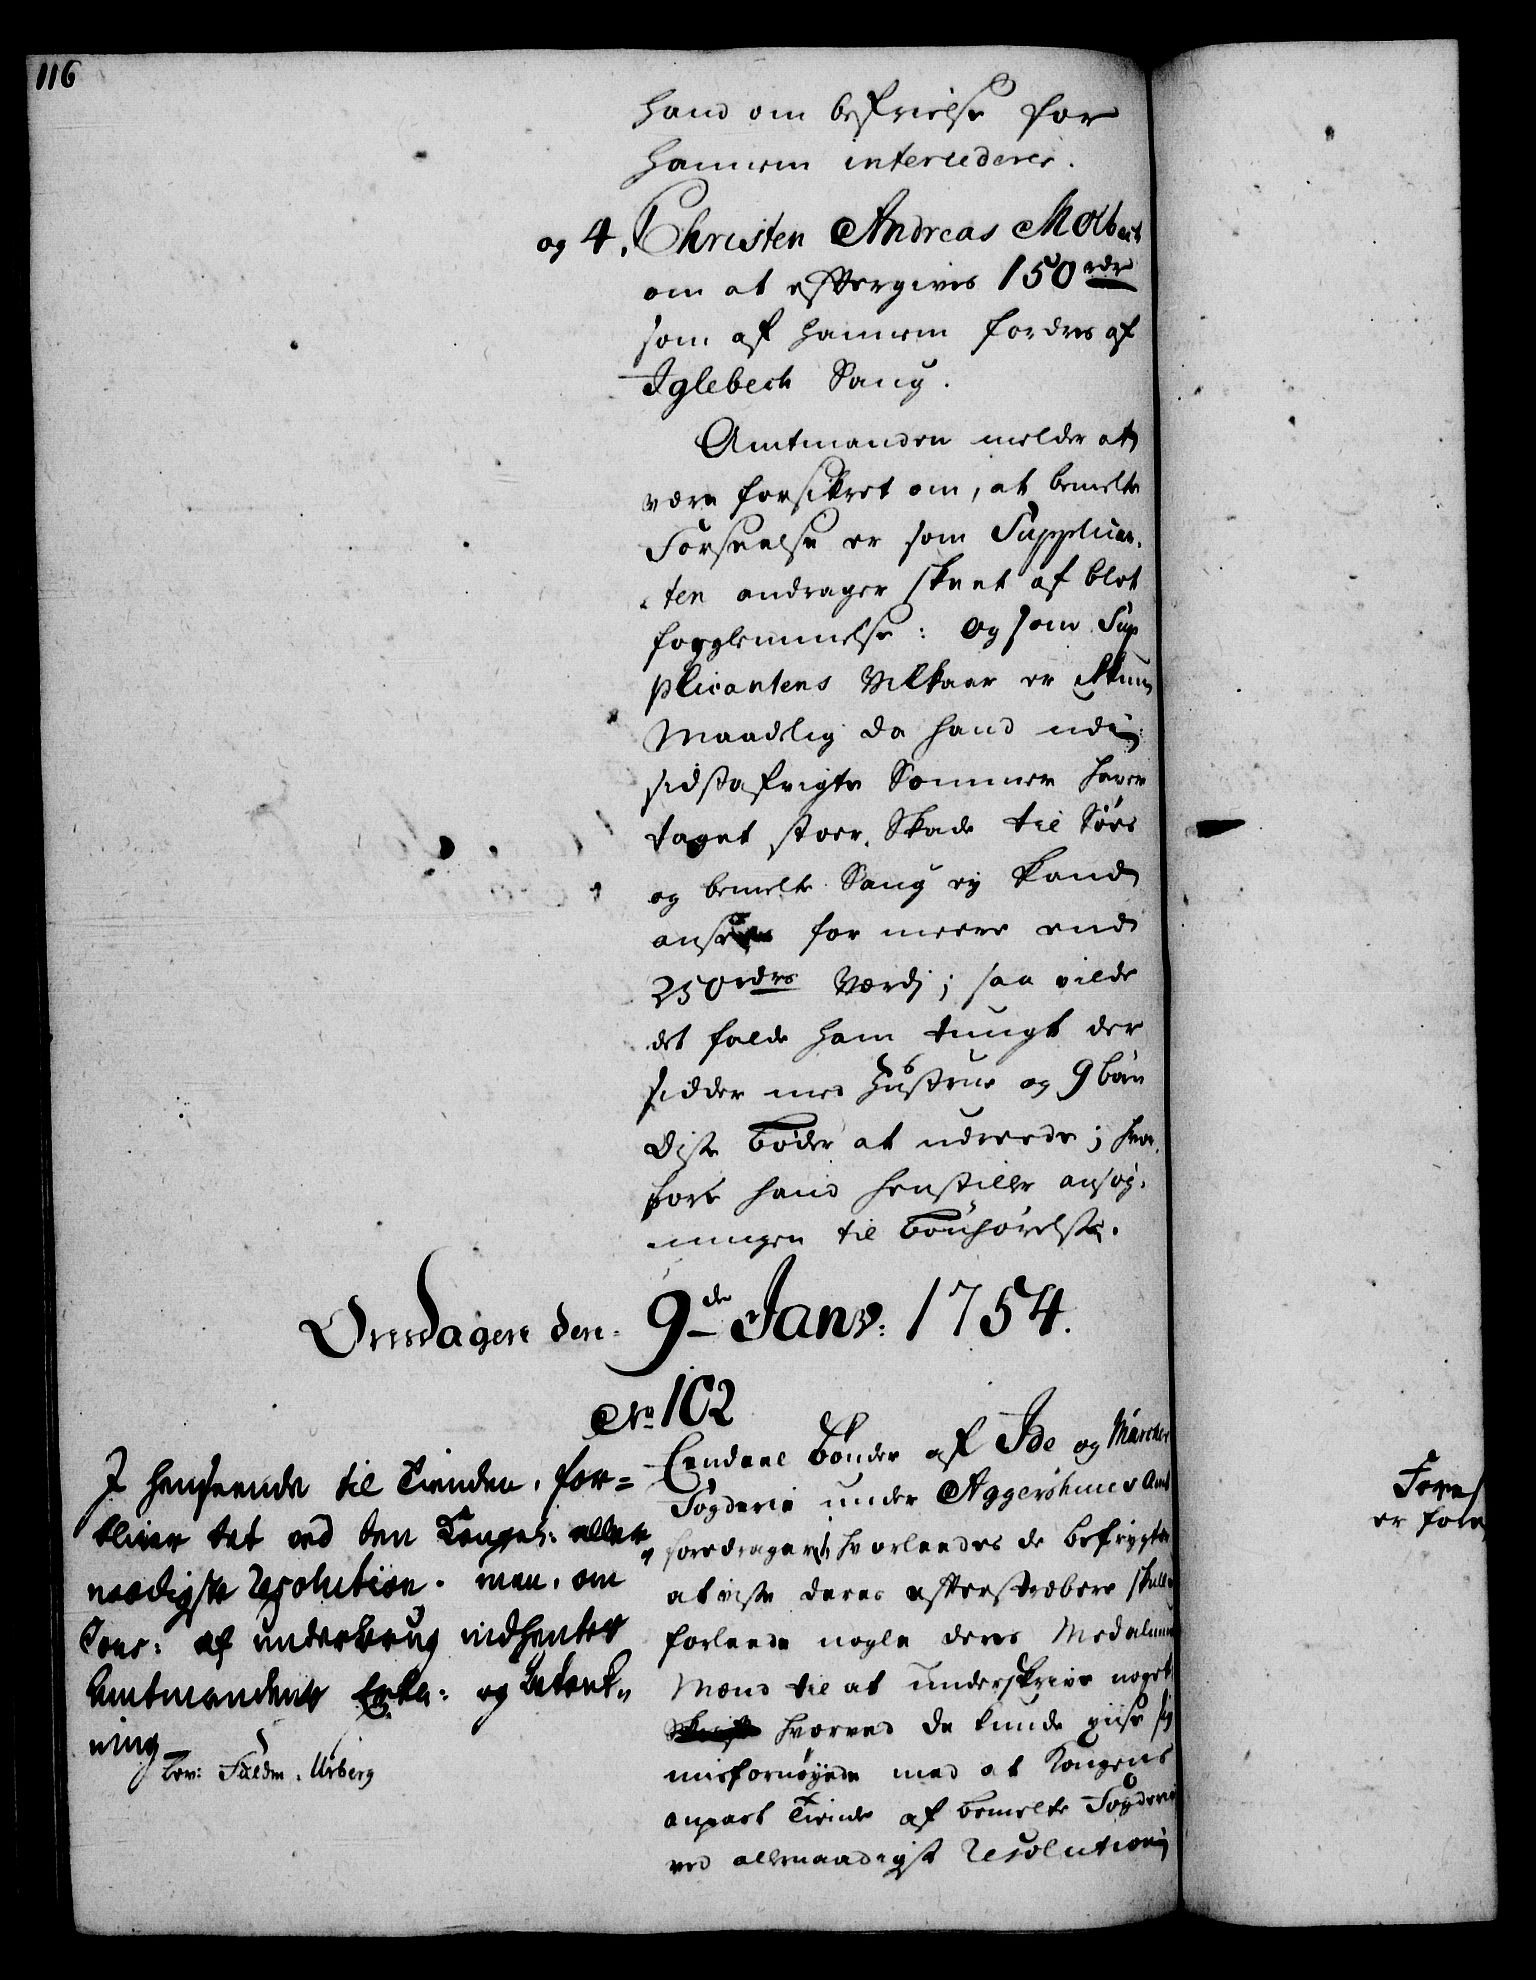 116
hand om befrielse for
hannem intercederer.
og 4. Christen Andreas Molbech
om at eftergives 150 rdr
som af hannem fordres af
Iglebech Saug.
Amtmanden melder at
være forsikret om, at bemelte
Forseelse er som Supplican-
ten andrager skeet af blot
forglemmelse: og som Sup
plicantens Vilkaar er ikkun
Maadelig da hand udi
sidstafvigte Sommer haver
taget stoer Skade til Søes
og bemelte Saug ey kand
for meere end
250 rdrs Værdj; saa vilde
det falde ham tungt der
sidder med Hustrue og 9 børn
disse bøder at udreede; hvor-
fore hand henstiller ansøg-
ningen til bønhørelse.
Onsdagen den 9de Janv: 1754.
No 102
Eendeel Bønder af Ide og Marcker
Fogderie under Aggershuus Amt
foredrager, hvorleedes de befrygter
at visse deres efterstræbere skulle
forleede nogle deres Medalmues
Mænd til at underskrive noget
hvorved de kunde viise sig
misfornøyede med at Kongens
anpart Tiende af bemelte Fogderie
ved allernaadigst Resolution
I henseende til Tienden, for=
bliver det ved den Kongel: aller
naadigste Resolution. men, om
af underbrug indhentes
Amtmandens Erkl: og betænk-
ning
Lev: Fuldm. Urberg
er fore